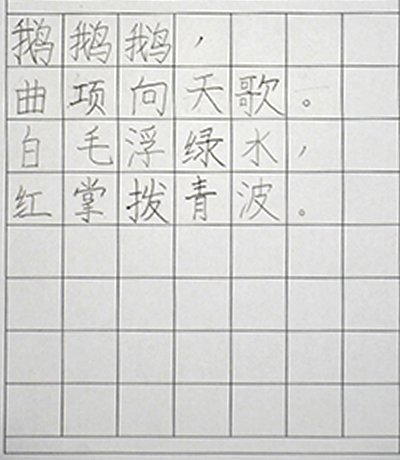 鹅鹅鹅，
曲项向天歌。
白毛浮绿水，
红掌拨青波。